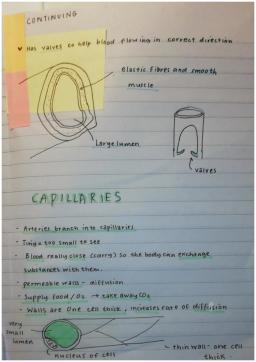 CONTINUING
Has valves to help blood flowing in correct direction
elastic fibres and smooth
muscle
Large lumen
valves
CAPILLARIES
- Arteries branch into capillaries.
- too small to see
- Blood really close (carry) so the body can exchange
substances with them.
- permeable walls - diffusion
- Supply food / O2 → take away CO2
- Walls are one cell thick, increases rate of diffusion
very
small
lumen
nucleus of cell
thin wall- one cell
thick